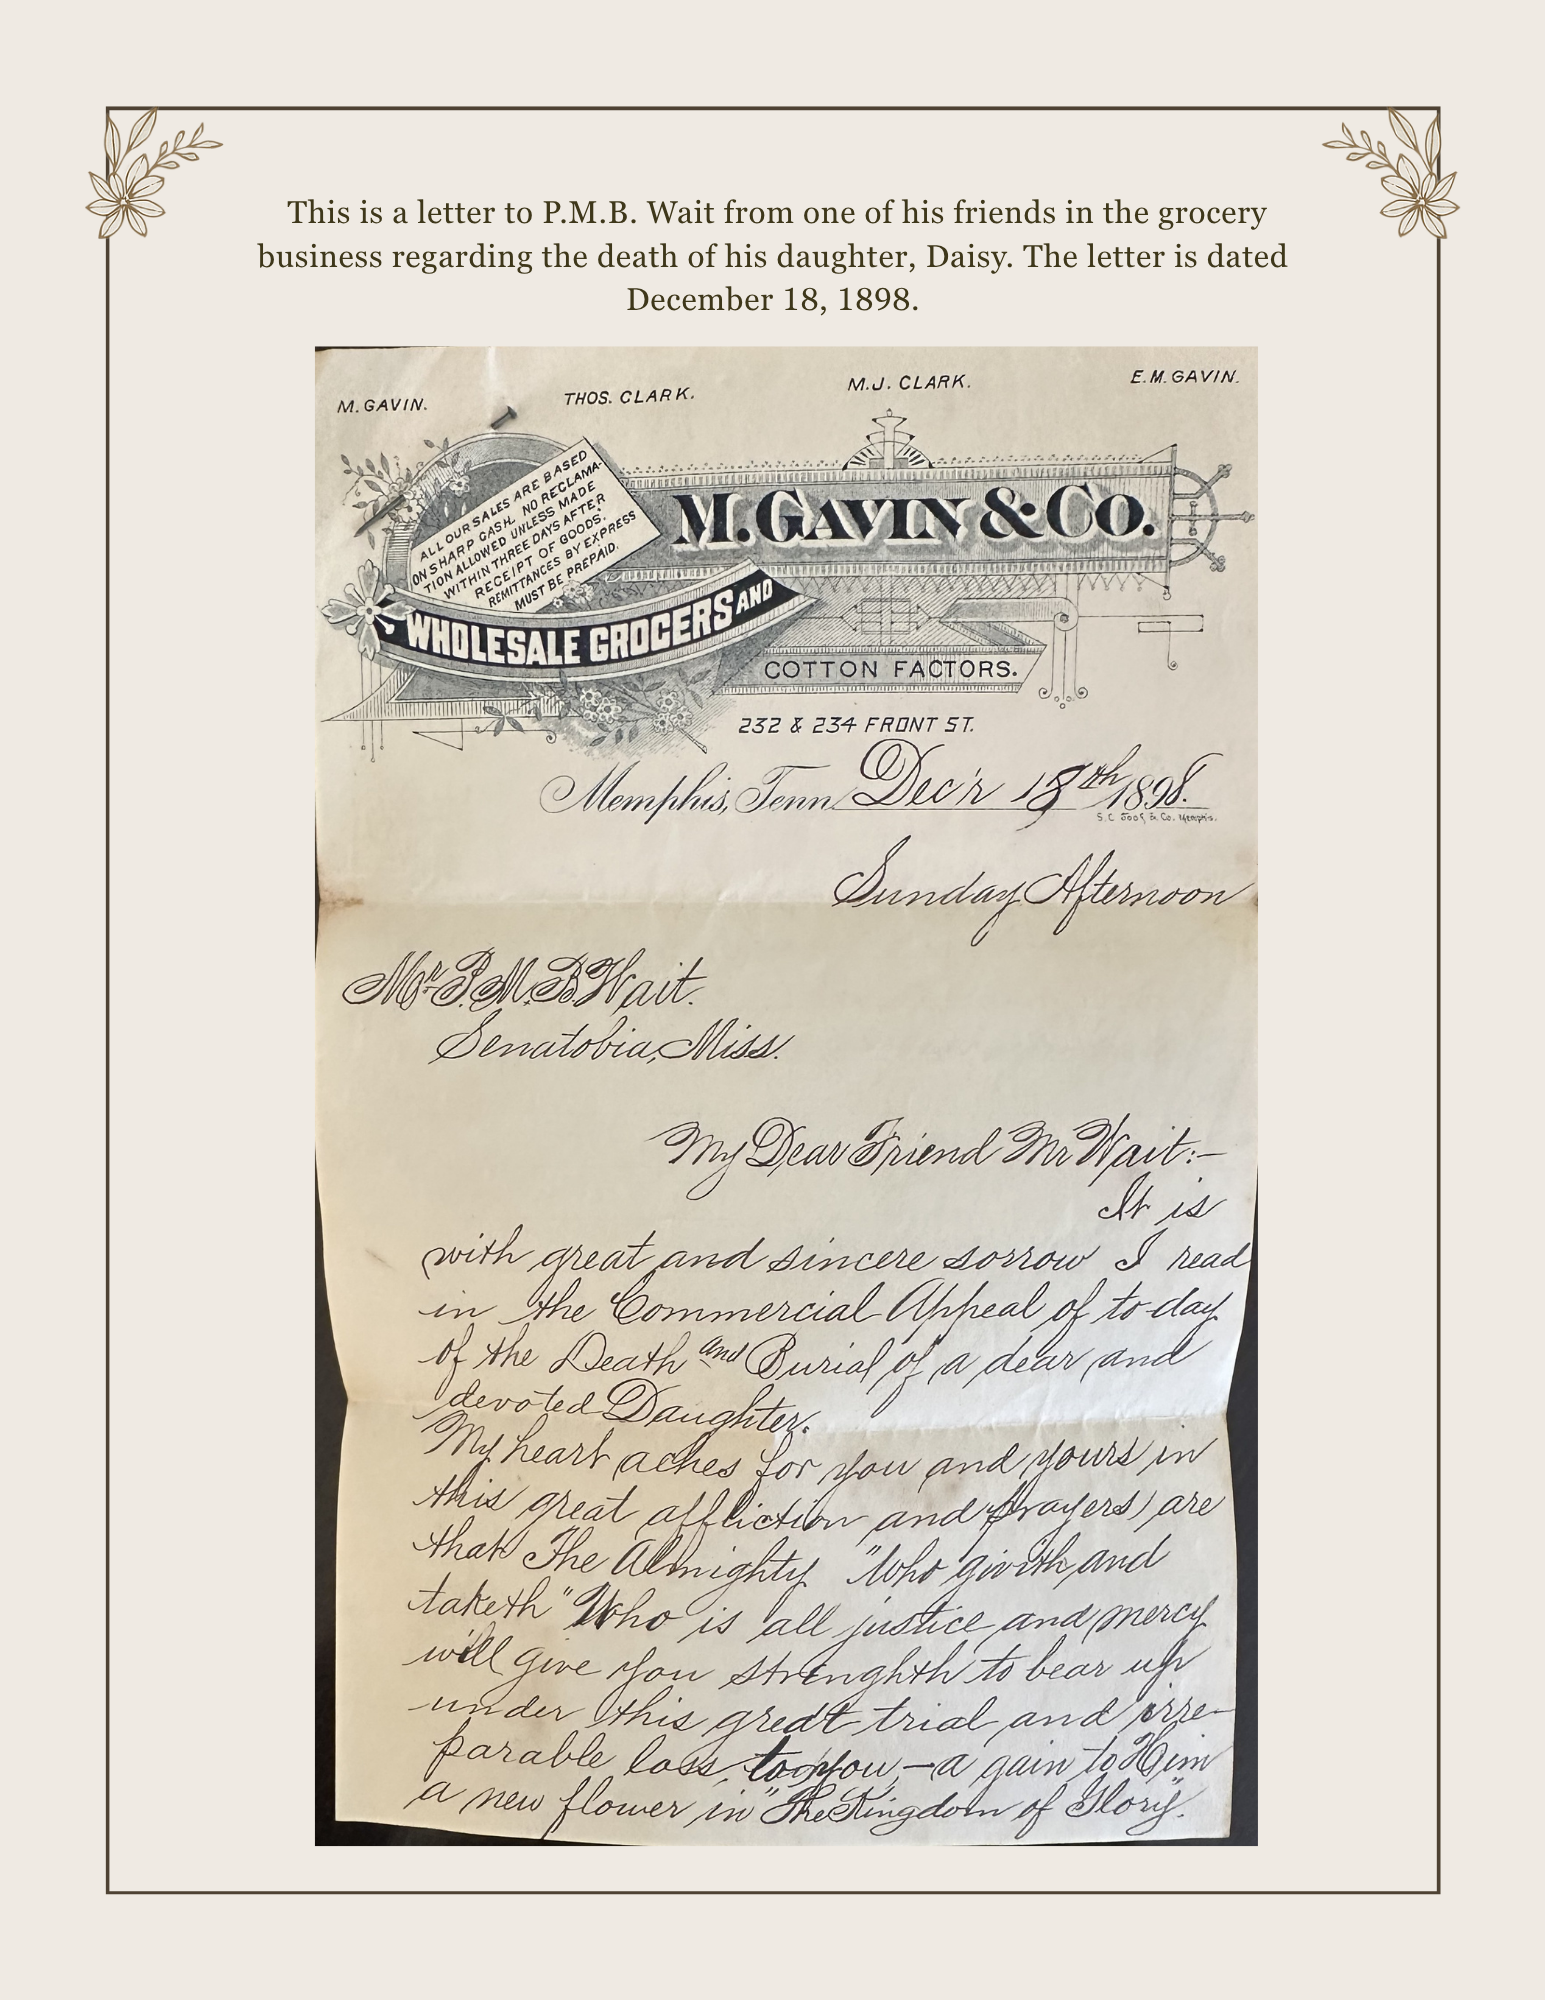 This is a letter to P.M.B. Wait from one of his friends in the grocery
business regarding the death of his daughter, Daisy. The letter is dated
December 18, 1898.
M. GAVIN.
THOS. CLARK.
M.J. CLARK.
E.M. GAVIN.
ALL OUR SALES ARE BASED
ON SHARP CASH. NO RECLAMA-
TION ALLOWED UNLESS MADE
WITHIN THREE DAYS AFTER
RECEIPT OF GOODS.
REMITTANCES BY EXPRESS
MUST BE PREPAID.
M. GAVIN & CO.
WHOLESALE GROCERS AND
COTTON FACTORS.
232 & 234 FRONT ST.
Memphis, Tenn. Dec'r 18th 1898.
S.C. & Co. Memphis.
Sunday Afternoon
Mr. P. M. B. Wait.
Senatobia, Miss.
My Dear Friend Mr Wait:—
It is
with great and sincere sorrow I read
in the Commercial Appeal of to-day
of the Death and Burial of a dear and
devoted Daughter.
My heart aches for you and yours in
this great affliction and prayers are
that The Almighty "Who givith and
taketh" Who is all justice and mercy
will give you strenghth to bear up
under this great trial and irre-
parable loss, to you,—a gain to Him
a new flower in "The Kingdom of Glory".